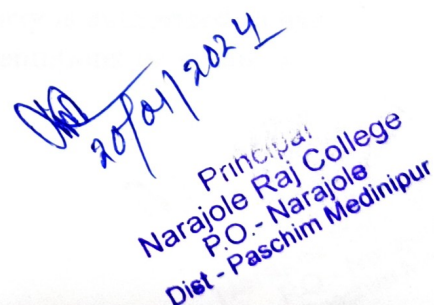 20/01/2024
Principal
Narajole Raj College
P.O.- Narajole
Dist - Paschim Medinipur